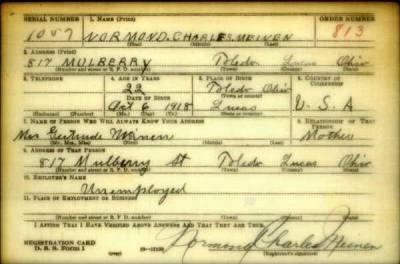 SERIAL NUMBER 1. NAME (Print) ORDER NUMBER
1057 NORMOND CHARLES MEINEN 813
(First) (Middle) (Last)
2. ADDRESS (Print)
817 MULBERRY Toledo Lucas Ohio
(Number and street or R. F. D. number) (Town) (County) (State)
3. TELEPHONE 4. AGE IN YEARS 5. PLACE OF BIRTH 6. COUNTRY OF CITIZENSHIP
22 Toledo Ohio
DATE OF BIRTH (Town or county)
Oct 6 1918 Lucas U. S. A
(Exchange) (Number) (Mo.) (Day) (Yr.) (State or country)
7. NAME OF PERSON WHO WILL ALWAYS KNOW YOUR ADDRESS 8. RELATIONSHIP OF THAT PERSON
Mrs Gertrude Meinen Mother
(Mr., Mrs., Miss) (First) (Middle) (Last)
9. ADDRESS OF THAT PERSON
817 Mulberry St Toledo Lucas Ohio
(Number and street or R. F. D. number) (Town) (County) (State)
10. EMPLOYER'S NAME
Unemployed
11. PLACE OF EMPLOYMENT OR BUSINESS
(Number and street or R. F. D. number) (Town) (County) (State)
I AFFIRM THAT I HAVE VERIFIED ABOVE ANSWERS AND THAT THEY ARE TRUE.
REGISTRATION CARD
D. S. S. Form 1 Normond Charles Meinen
(Registrant's signature)